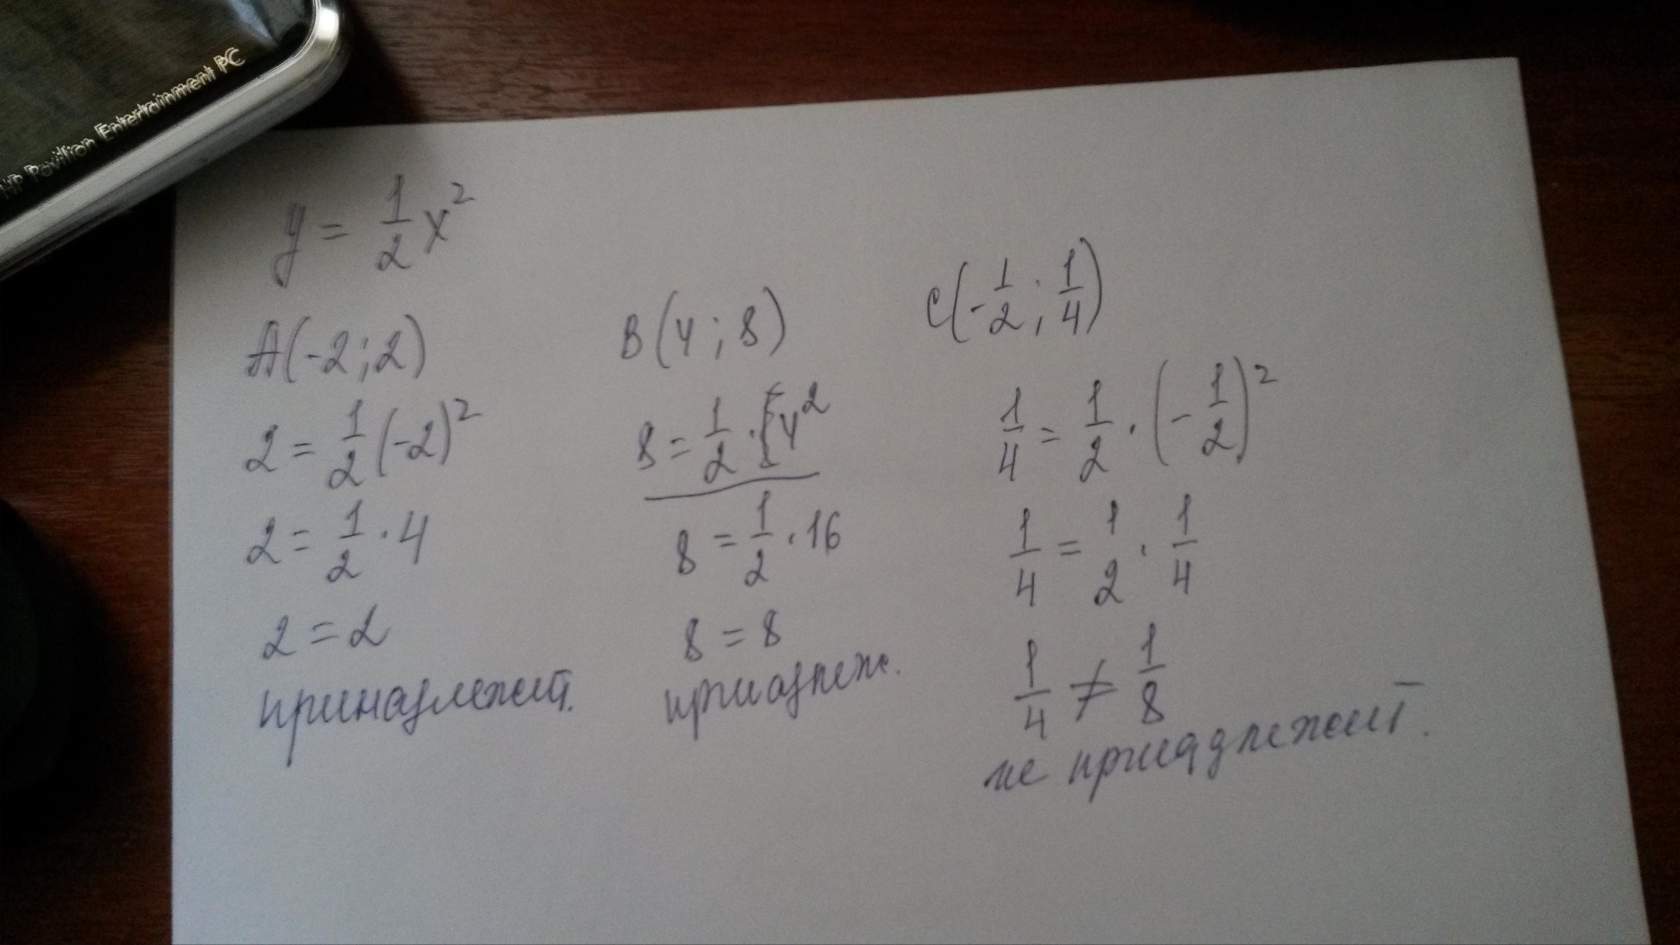 HP Pavilion Entertainment PC
y = 1/2 x²
A(-2; 2)
2 = 1/2 (-2)²
2 = 1/2 · 4
2 = 2
принадлежит.
B(4; 8)
8 = 1/2 · 4²
8 = 1/2 · 16
8 = 8
принадлеж.
C(-1/2; 1/4)
1/4 = 1/2 · (-1/2)²
1/4 = 1/2 · 1/4
1/4 ≠ 1/8
не принадлежит.